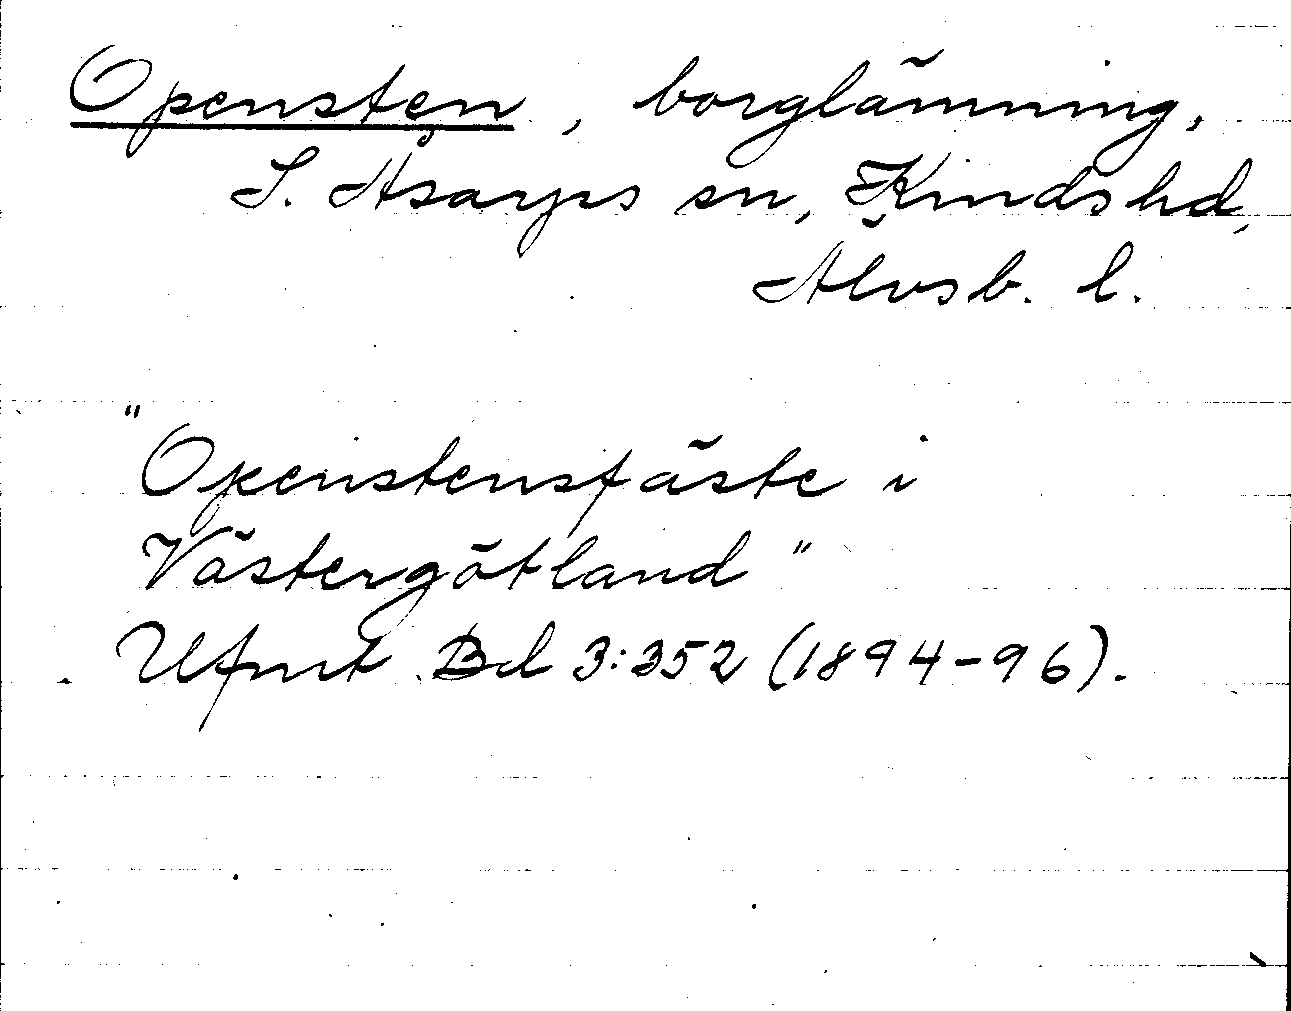 Opensten, borglämning,
S. Åsarps sn, Kinds hd,
Älvsb. l.
"Openstensfäste i
Västergötland"
Ufmt Bd 3:352 (1894-96).